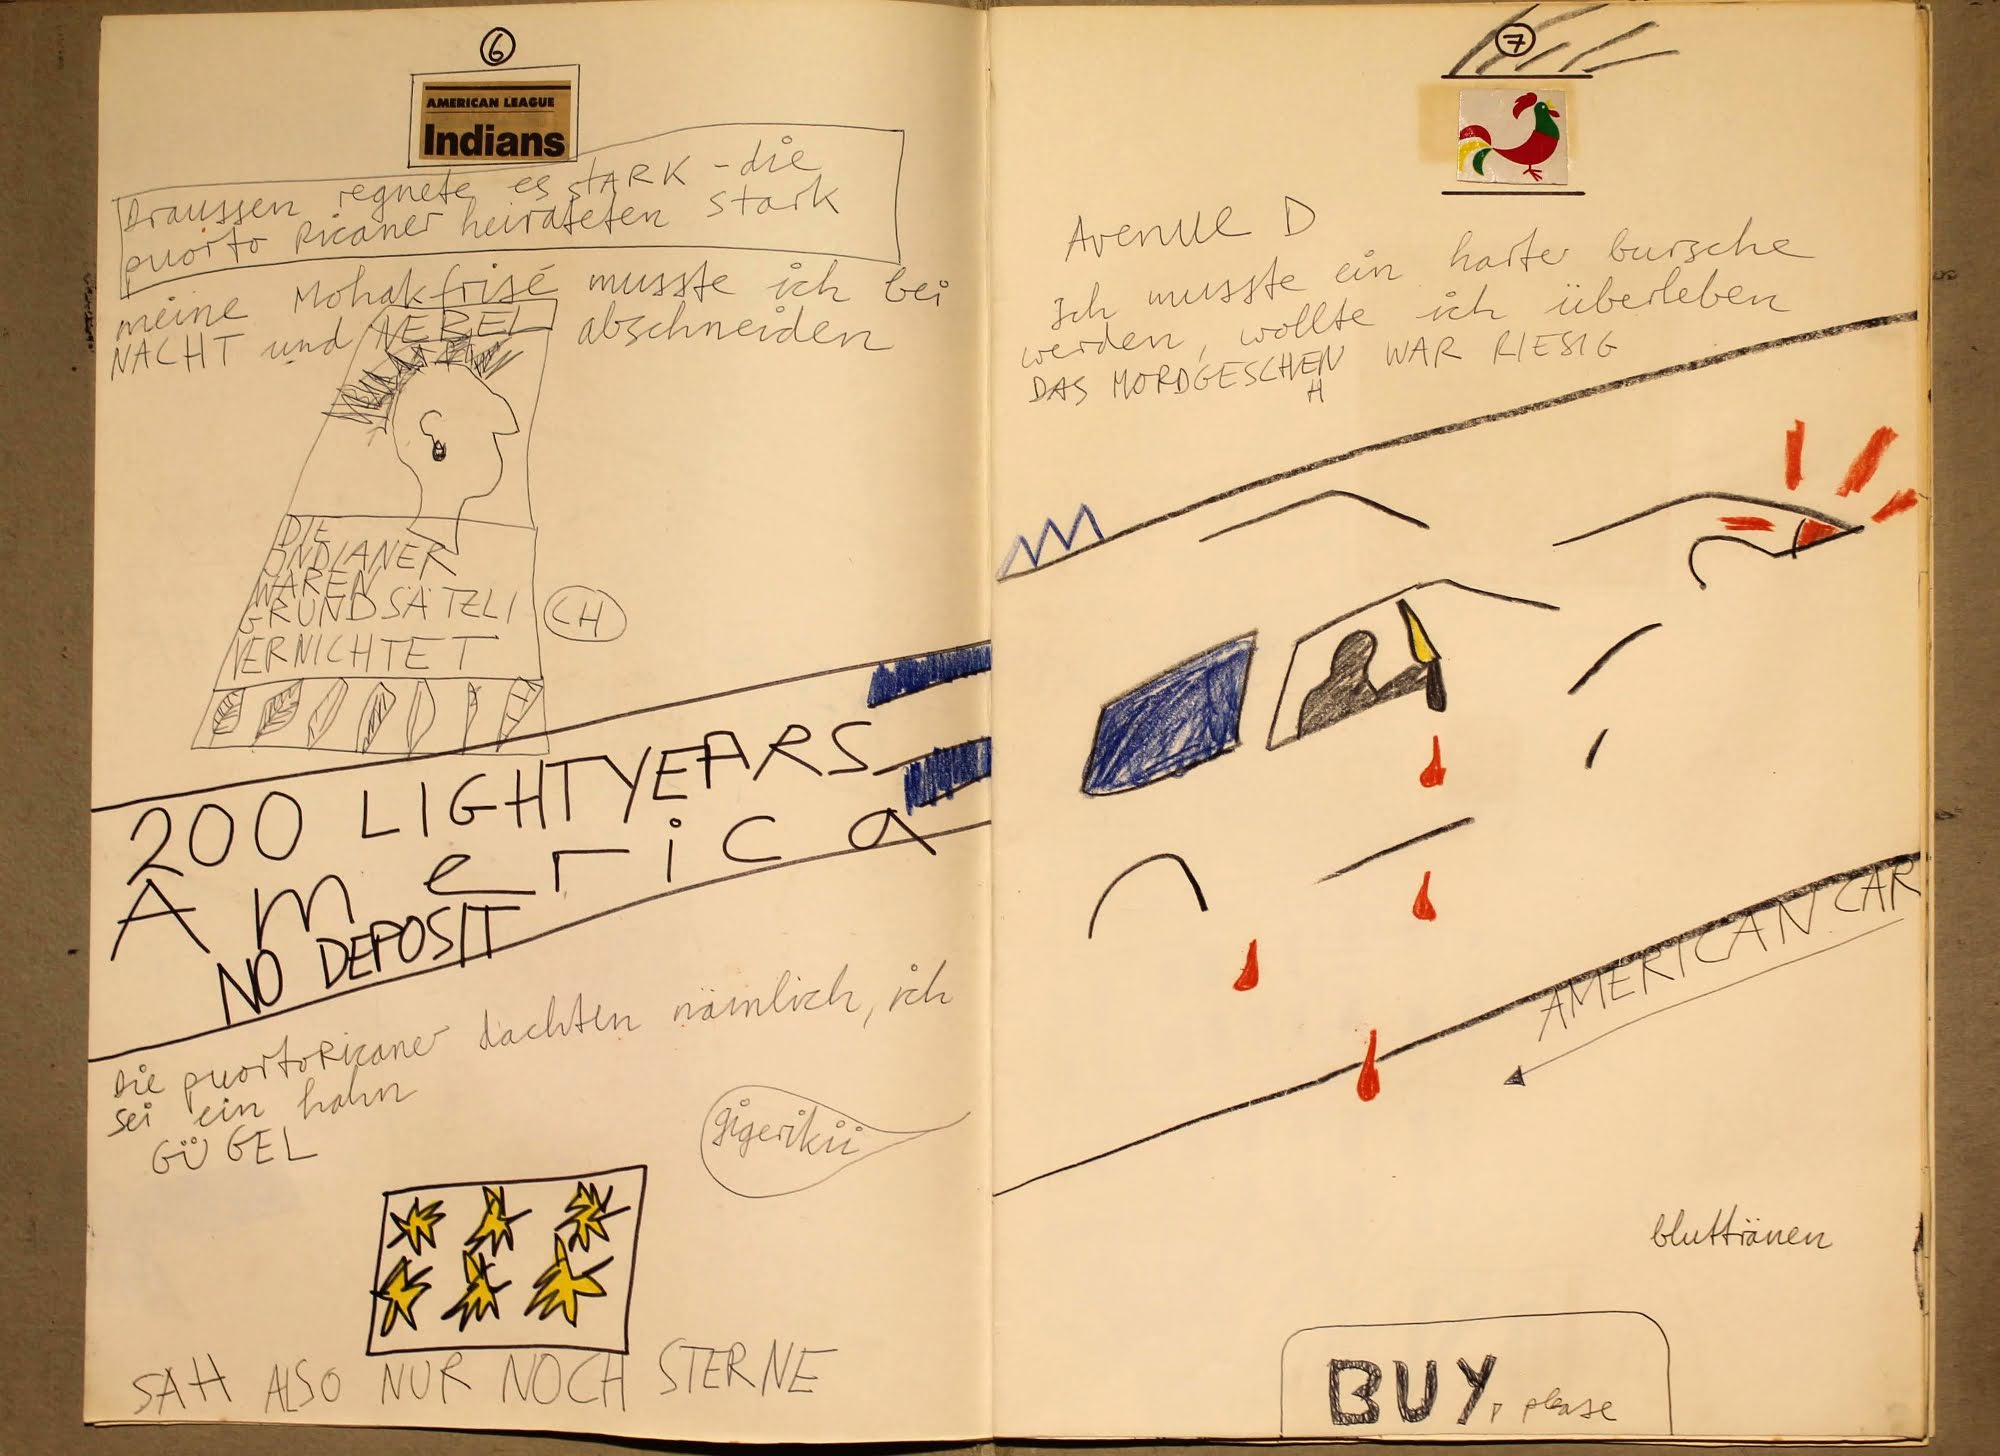 6
AMERICAN LEAGUE
Indians
Draussen regnete es stARK - die
puorto Ricaner heirateten stark
meine Mohakfrisé musste ich bei
NACHT und NEBEL abschneiden
DIE
INDIANER
WAREN
GRUNDSÄTZLI
CH
VERNICHTET
200 LIGHTYEARS
America
NO DEPOSIT
die puortoRicaner dachten nämlich, ich
sei ein hahn
GÜGEL
gigerikii
SAH ALSO NUR NOCH STERNE
7
Avenue D
Ich musste ein harter bursche
werden, wollte ich überleben
DAS MORDGESCHEN WAR RIESIG
H
AMERICAN CAR
bluttränen
BUY, please